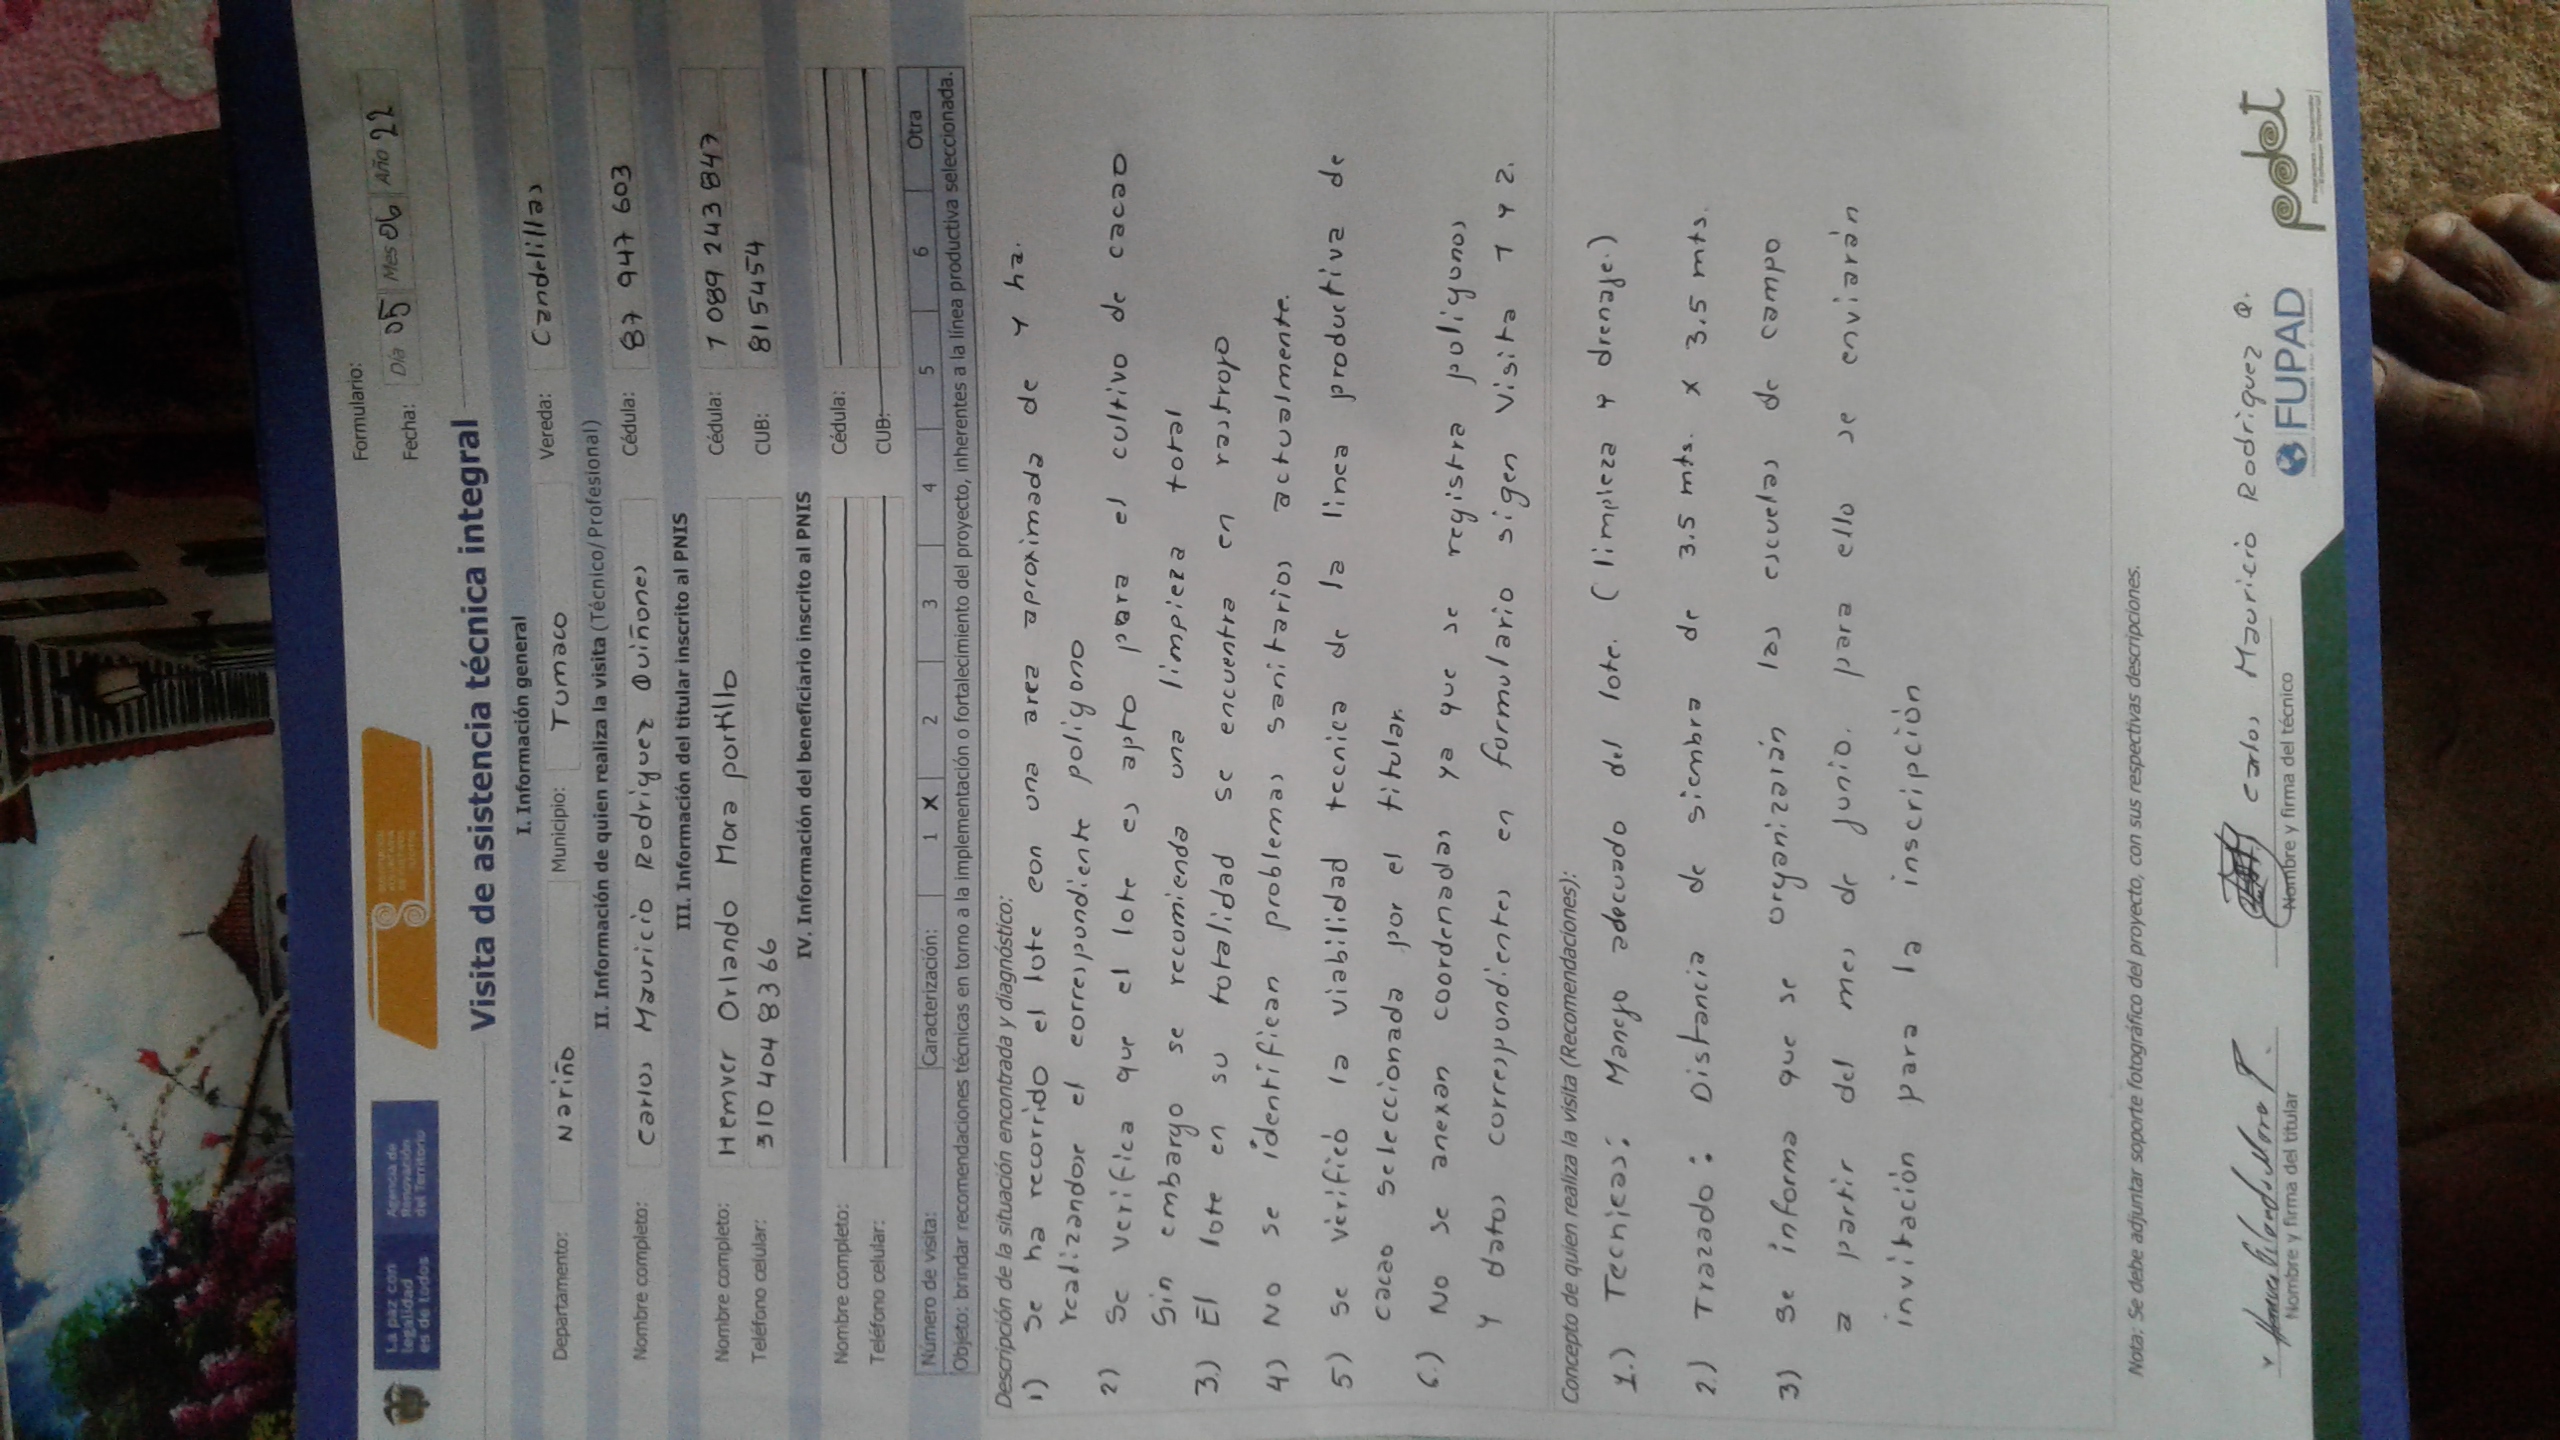 La paz con
legalidad
es de todos
Agencia de
Renovación
del Territorio
Formulario:
Fecha: Día 05 Mes 06 Año 22
Visita de asistencia técnica integral
I. Información general
Departamento: Nariño Municipio: Tumaco Vereda: Candelillas
II. Información de quien realiza la visita (Técnico/Profesional)
Nombre completo: Carlos Mauricio Rodriguez Quiñones Cédula: 87 947 603
III. Información del titular inscrito al PNIS
Nombre completo: Hemver Orlando Mora portillo Cédula: 1 089 243 847
Teléfono celular: 310 404 83 66 CUB: 815454
IV. Información del beneficiario inscrito al PNIS
Nombre completo: Cédula:
Teléfono celular: CUB:
Número de visita: Caracterización: 1 X 2 3 4 5 6 Otra
Objeto: brindar recomendaciones técnicas en torno a la implementación o fortalecimiento del proyecto, inherentes a la línea productiva seleccionada.
Descripción de la situación encontrada y diagnóstico:
1) Se ha recorrido el lote con una area aproximada de 4 ha.
realizandose el correspondiente poligono
2) Se verifica que el lote es apto para el cultivo de cacao
Sin embargo se recomienda una limpieza total
3.) El lote en su totalidad se encuentra en rastrojo
4) No se identifican problemas sanitarios actualmente.
5) Se verificó la viabilidad tecnica de la linea productiva de
cacao seleccionada por el titular.
6.) No se anexan coordenadas ya que se registra poligonos
y datos correspondientes en formulario sigen visita 1 y 2.
Concepto de quien realiza la visita (Recomendaciones):
1.) Tecnicas: Manejo adecuado del lote. (limpieza y drenaje.)
2.) Trazado: Distancia de siembra de 3.5 mts. x 3.5 mts.
3) Se informa que se organizarán las escuelas de campo
a partir del mes de junio. para ello se enviarán
invitación para la inscripción
Nota: Se debe adjuntar soporte fotográfico del proyecto, con sus respectivas descripciones.
Carlos Mauricio Rodriguez Q.
Nombre y firma del titular Nombre y firma del técnico
FUPAD
pdet